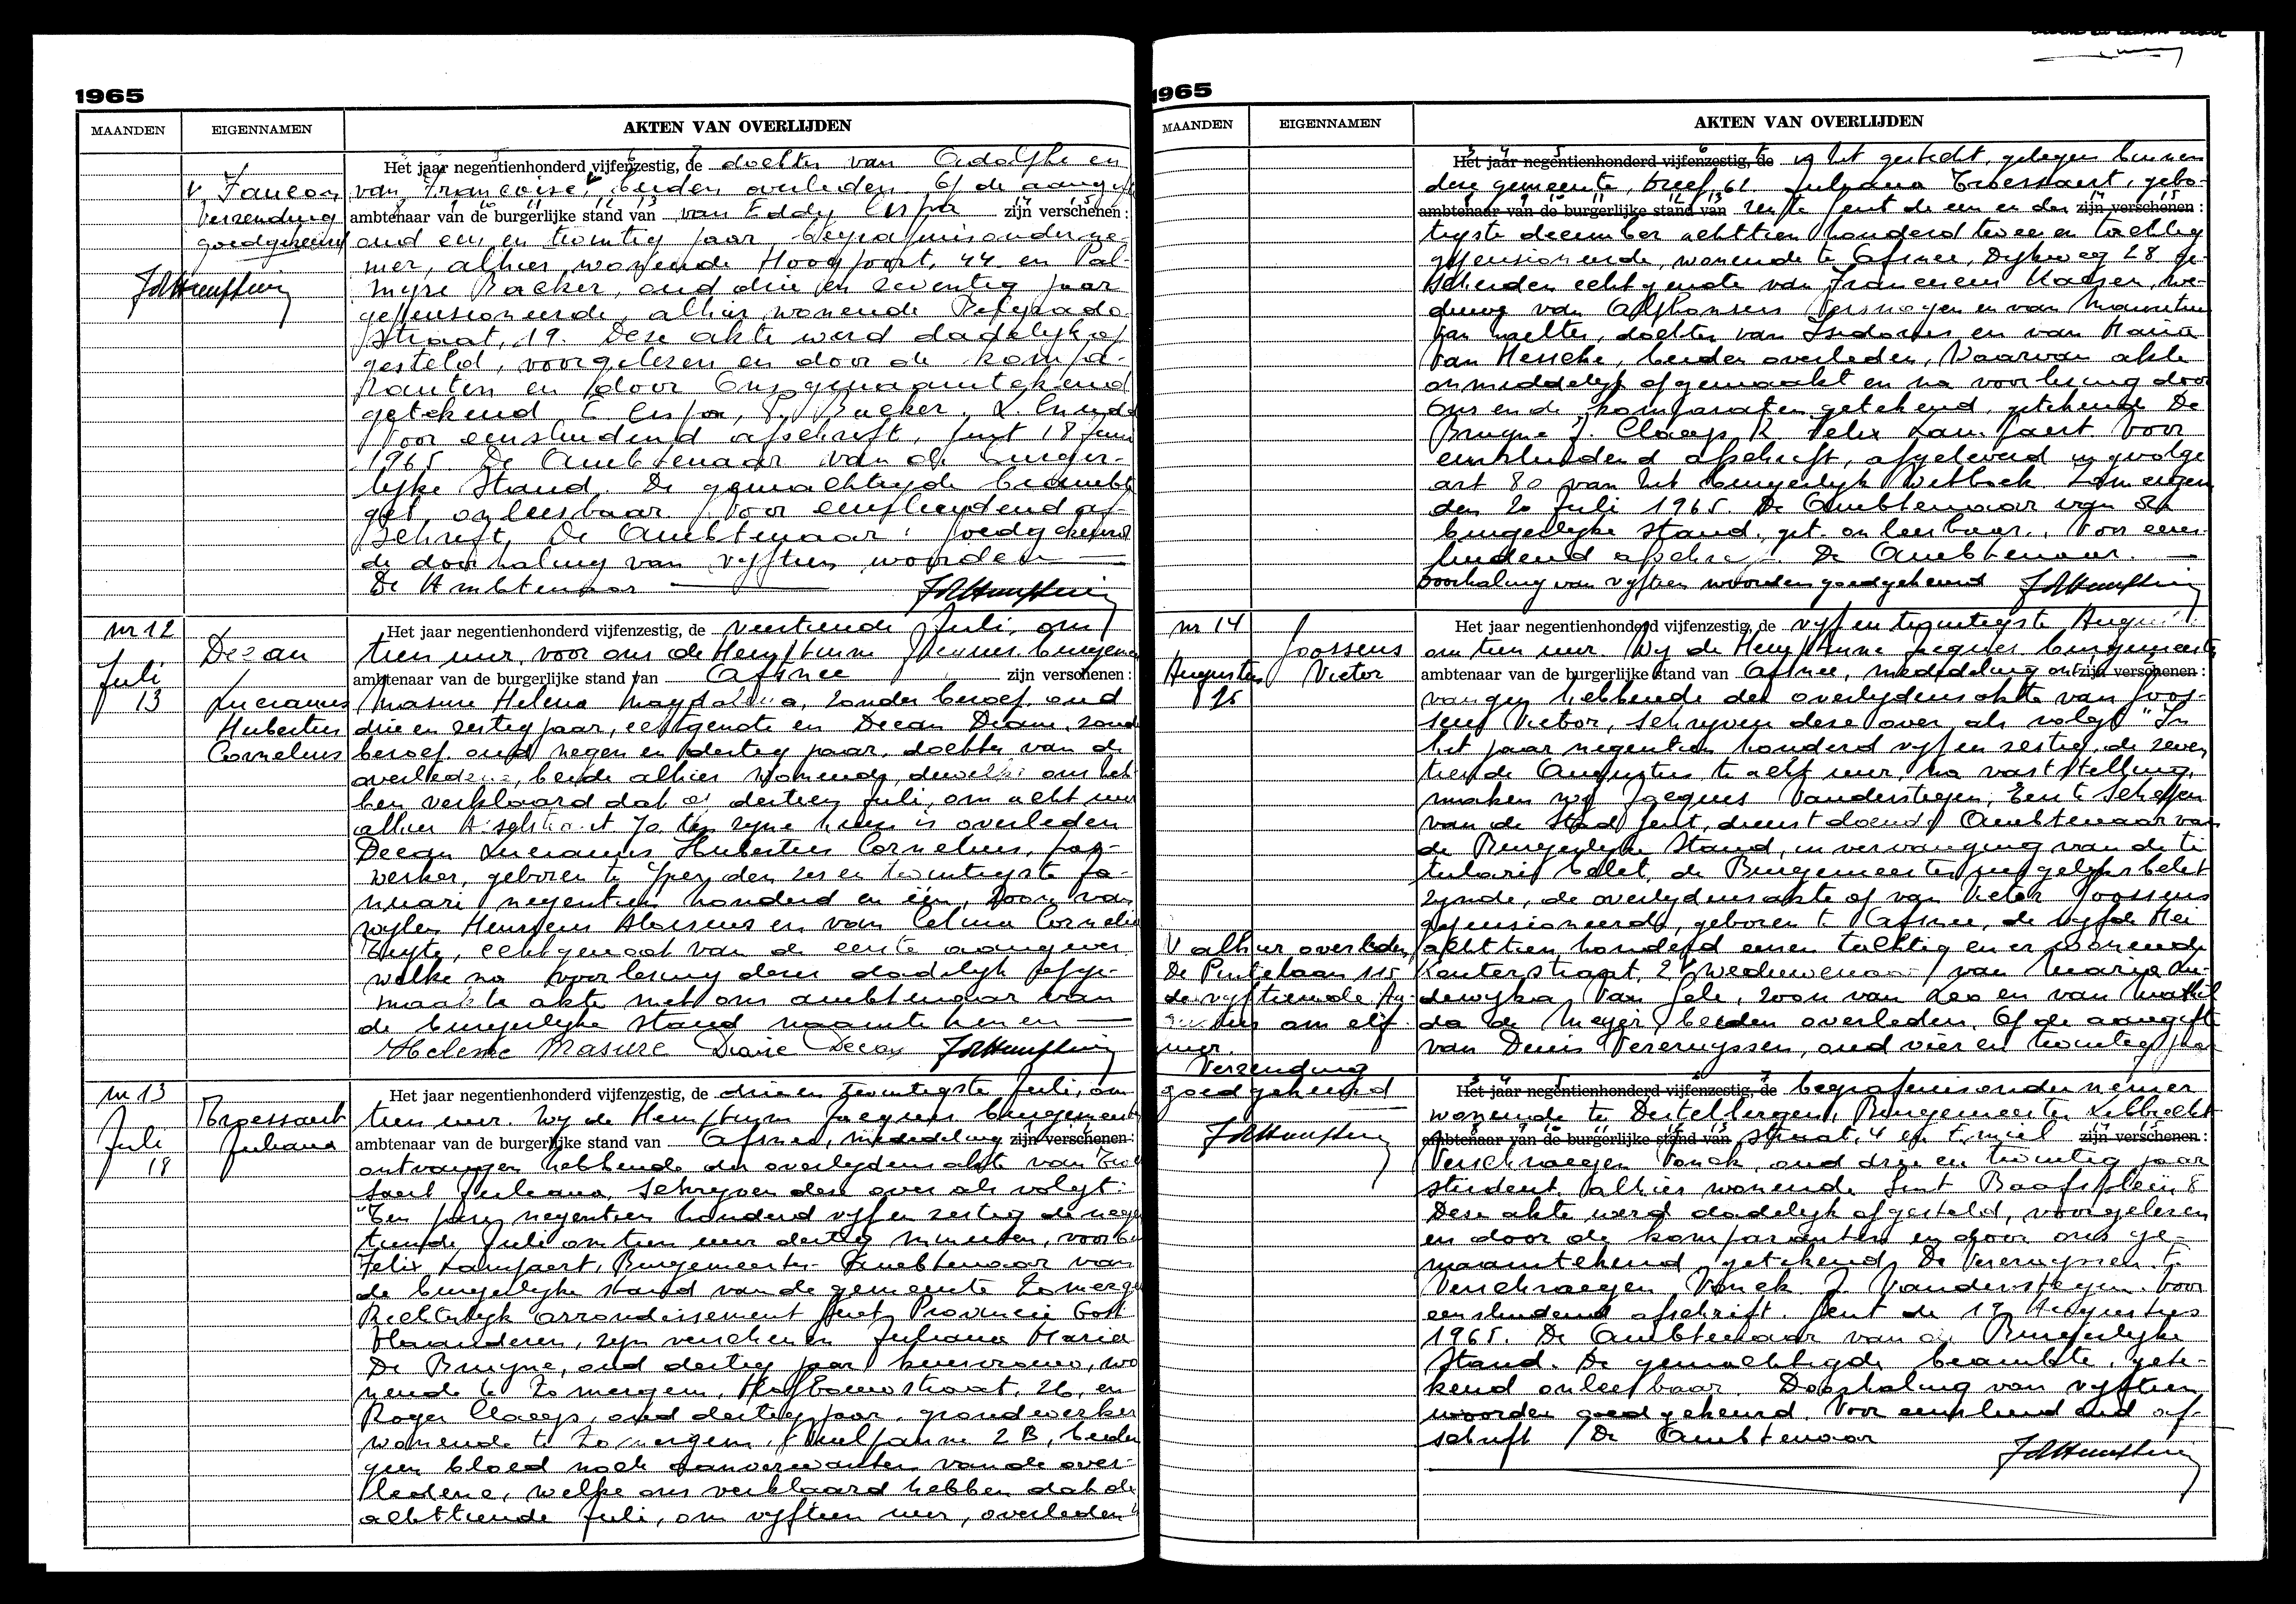 1965
MAANDEN EIGENNAMEN AKTEN VAN OVERLIJDEN
Het jaar negentienhonderd vijfenzestig, de dochter van Adolphe en
van Françoise, beiden overleden. Op de aangifte
ambtenaar van de burgerlijke stand van van Eddy Espa zijn verschenen:
oud een en twintig jaar begrafenisonderne-
mer, alhier wonende Hoogpoort, 44 en Pal-
myre Backer, oud drie en zeventig jaar
gepensioneerde, alhier wonende
straat, 19. Deze akte werd dadelijk op
gesteld, voorgelezen en door de kompa-
ranten en door Ons genaamtekend
getekend E Espa, P. Backer,
Voor eensluidend afschrift, Gent 18 Juni
1965 De Ambtenaar van de burger-
lijke Stand. De gemachtigde beambte
get. onleesbaar Voor eensluidend af-
schrift, De Ambtenaar: goedgekeurd
de doorhaling van vyftien woorden
De Ambtenaar
V Faucon
Verzending
goedgekeurd
nr 12
Juli
13
Decan
Lucianus
Hubertus
Cornelius
Het jaar negentienhonderd vijfenzestig, de veertiende Juli, om
tien uur, voor ons de Hemptinne Jacques burgemeester
ambtenaar van de burgerlijke stand van Afsnee zijn verschenen:
Masure Helena Magdalena, zonder beroep, oud
drie en zestig jaar, echtgenote en Decan Diane, zonder
beroep, oud negen en dertig jaar, dochter van de
overledene, beide alhier wonende, dewelke ons heb-
ben verklaard dat op dertien Juli, om acht uur
alhier 70 ten zyne huize is overleden
Decan Lucianus Hubertus Cornelius, dag-
werker, geboren te Yper den zes en twintigste ja-
nuari negentien honderd en één, zoon van
wylen Henricus Aloisius en van Celina Cornelia
echtgenoot van de eerste aangever
welke na voorlezing dezer dadelyk opge-
maakte akte met ons ambtenaar van
de burgerlyke stand naamtekenen
Helene Masure Diane Decan
nr 13
Juli
18
Troessaert
Juliana
Het jaar negentienhonderd vijfenzestig, de drie en twintigste Juli, om
tien uur. Wy de Hemptinne Jacques burgemeester
ambtenaar van de burgerlijke stand van Afsnee, mededeling zijn verschenen:
ontvangen hebbende der overlydensakte van Troes-
saert Juliana, schryven deze over als volgt:
"Ten jare negentien honderd vyf en zestig de negen
tiende Juli om tien uur dertig minuten, voor ons
Felix Lampaert, Burgemeester Ambtenaar van
de burgerlyke stand van de gemeente Zomergem
Rechterlyk arrondissement Gent Provincie Oost
Vlaanderen, zyn verschenen Juliana Maria
De Bruyne, oud dertig jaar huisvrouw, wo
nende te Zomergem, straat, 26, en
Roger Claeys, oud dertig jaar, grondwerker
wonende te Zomergem, 2B, beiden
geen bloed noch aanverwanten van de over-
ledene, welke ons verklaard hebben dat de
achttiende Juli, om vyftien uur, overleden
1965
MAANDEN EIGENNAMEN AKTEN VAN OVERLIJDEN
Het jaar negentienhonderd vijfenzestig, de is het gesticht, gelegen binnen
deze gemeente, Dreef, 61. Juliana Troessaert, gebo-
ambtenaar van de burgerlijke stand van ren te Gent de een en der zijn verschenen:
tigste december achttien honderd twee en tachtig
gepensioneerde, wonende te Afsnee, Dykweg 28. ge-
scheiden echtgenote van Franciscus we-
duwe van Alphonsus en van Mauritius
Van dochter van Isidorus en van Maria
Van Hescke, beiden overleden, Waarvan akte
onmiddelyk opgemaakt en na voorlezing door
Ons en de komparaten getekend, getekend De
Bruyne J. Claeys R. Felix Lampaert. Voor
eensluidend afschrift, afgeleverd ingevolge
art 80 van het burgerlyk Wetboek Zomergem
den 20 Juli 1965. De Ambtenaar van de
burgerlyke stand, get. onleesbaar. Voor eens-
luidend afschrift. De Ambtenaar.
Doorhaling van vyftien woorden goedgekeurd
nr 14
Augustus
15
Joossens
Victor
Het jaar negentienhonderd vijfenzestig, de vyf en twintigste Augustus
om tien uur. Wy de Hemptinne Jacques burgemeester
ambtenaar van de burgerlijke stand van Afsnee, mededeling ont zijn verschenen:
vangen hebbende der overlydensakte van Joos-
sens Victor, schryven deze over als volgt "In
het jaar negentien honderd vyf en zestig, de zeven
tiende Augustus te elf uur, na vaststelling,
maken wy Jacques Vanderstegen, Eerste Schepen
van de Stad Gent, dienstdoende Ambtenaar van
de Burgerlyke Stand, in vervanging van de ti
tularis belet, de Burgemeester insgelyks belet
zynde, de overlydensakte op van Victor Joossens
gepensioneerd, geboren te Afsnee, de vyfde Mei
achttien honderd eenen tachtig en er wonende
Kouterstraat, 2, weduwenaar van Maria Lu-
dewyka Van Gele, zoon van Leo en van Mathil
da de Meyer, beiden overleden. Op de aangifte
van Denis Vereruyssen, oud vier en twintig jaar
V alhier overleden,
De Pintelaan 115
de vyftiende Au-
gustus om elf
uur.
Verzending
goedgekeurd
Het jaar negentienhonderd vijfenzestig, de begrafenisondernemer
wonende te Destelbergen, Burgemeester
ambtenaar van de burgerlijke stand van straat, 4 en Emiel zijn verschenen:
Verschraegen Vonck, oud drie en twintig jaar
student alhier wonende Sint Baafsplein 8
Deze akte werd dadelyk opgesteld, voorgelezen
en door de komparanten en door ons ge-
naamtekend getekend, De Vereruyssen. E
Verschraegen Vonck J. Vanderstegen. Voor
eensluidend afschrift. Gent de 17 Augustus
1965. De Ambtenaar van de Burgerlyke
Stand. De gemachtigde beambte, gete-
kend onleesbaar. Doorhaling van vyftien
woorden goedgekeurd. Voor eensluidend af-
schrift / De Ambtenaar